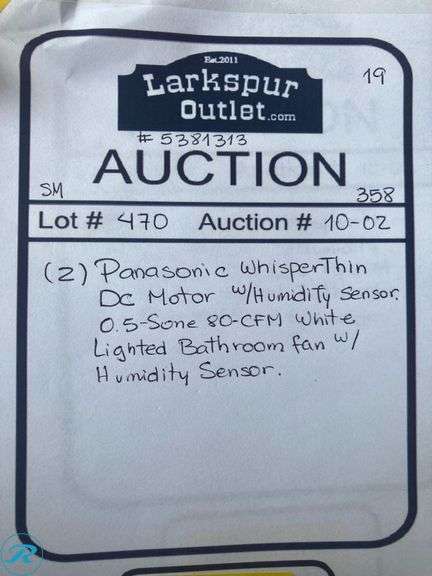 Est.2011
19
Larkspur
Outlet.com
# 5381313
AUCTION
SM
358
Lot # 470 Auction # 10-02
(2) Panasonic WhisperThin
DC Motor w/Humidity Sensor.
0.5-Sone 80-CFM White
Lighted Bathroom fan w/
Humidity Sensor.
R